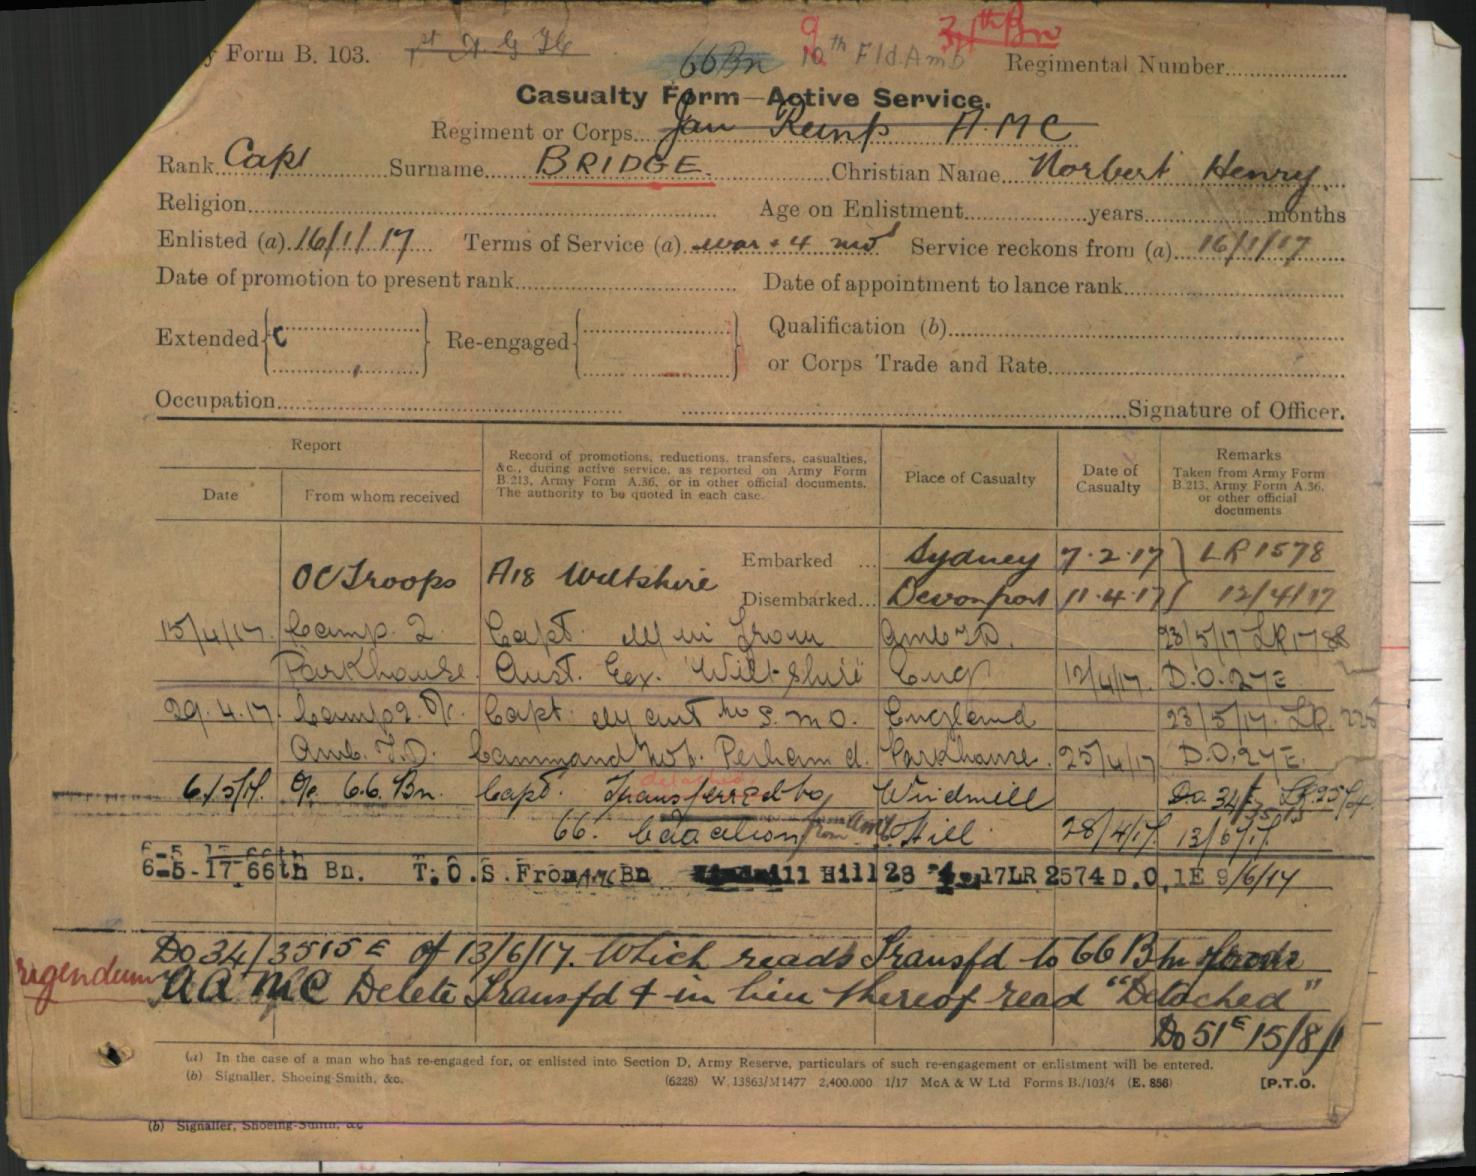 y Form B. 103. 1st A G H 66 Bn 9 10th Fld. Amb 34th Bn Regimental Number
Casualty Form—Active Service.
Regiment or Corps Jan Reinf A.M.C
Rank Capt Surname BRIDGE. Christian Name Norbert Henry.
Religion Age on Enlistment years months
Enlisted (a) 16/1/17 Terms of Service (a) war + 4 mos Service reckons from (a) 16/1/17
Date of promotion to present rank Date of appointment to lance rank
Extended Re-engaged Qualification (b)
or Corps Trade and Rate
Occupation Signature of Officer.
Report
Date From whom received
Record of promotions, reductions, transfers, casualties, &c., during active service, as reported on Army Form B.213, Army Form A.36, or in other official documents. The authority to be quoted in each case.
Place of Casualty
Date of Casualty
Remarks
Taken from Army Form B.213, Army Form A.36, or other official documents
OC Troops A18 Wiltshire Embarked ... Sydney 7.2.17 LR 1578
Disembarked... Devonport 11.4.17 12/4/17
15/4/17. Camp. 2. Capt. in from Amb T.D. 23/5/17 LR 1788
Parkhouse. Aust. Ex. "Wiltshire" Eng 12/4/17. D.O. 27E
29.4.17. Camp 2. Capt. out to S.M.O. England 23/5/17. LR.
Amb. T.D. Command No 1. Perham d. Parkhouse. 25/4/17 D.O. 27E.
detached
6/5/17. O/c 66 Bn. Capt. Transferred to Windmill Do. 34/3515
66. Battalion from AMC Hill 28/4/17. 13/6/17.
6-5-17 66th Bn. T.O.S. From AMC Bn Windmill Hill 28 4. 17 LR 2574 D.O. 1E 9/6/17
Do 34/3515E of 13/6/17. Which reads Transfd to 66 Bn from
AAMC Delete Transfd & in lieu thereof read "Detached"
Do 51E 15/8/1
(a) In the case of a man who has re-engaged for, or enlisted into Section D, Army Reserve, particulars of such re-engagement or enlistment will be entered.
(b) Signaller, Shoeing-Smith, &c. (6228) W. 13863/M1477 2,400.000 1/17 McA & W Ltd Forms B./103/4 (E. 856) [P.T.O.
(b) Signaller, Shoeing-Smith, &c